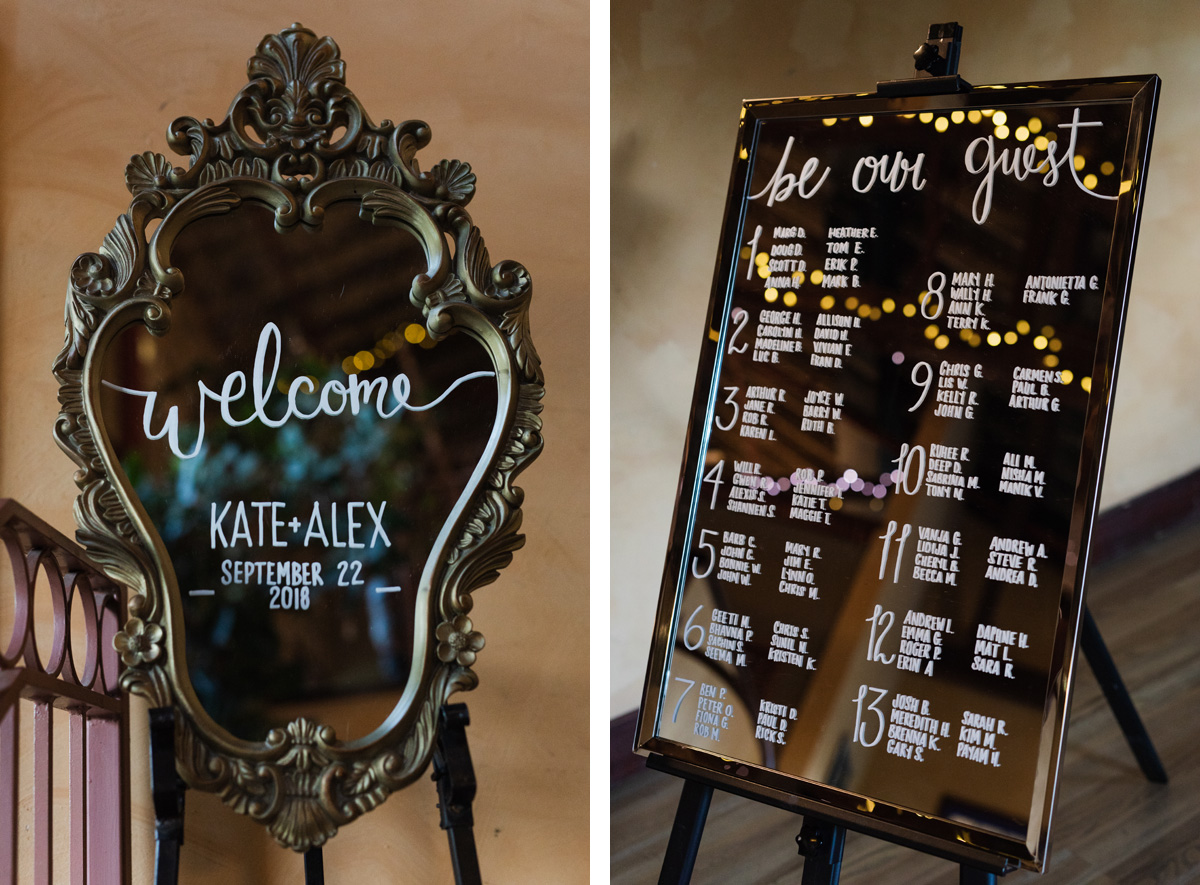 welcome
KATE+ALEX
SEPTEMBER 22
2018
be our guest
1
MARG D.
DOUG D.
SCOTT D.
ANNA H.
HEATHER E.
TOM E.
ERIK P.
MARK B.
2
GEORGE H.
CAROLYN H.
MADELINE B.
LUC B.
ALLISON H.
DAVID H.
VIVIAN F.
FRAN D.
3
ARTHUR R.
JANE R.
ROB R.
KAREN L.
JOYCE W.
BARRY W.
RUTH B.
4
WILL R.
GWEN
ALEXIS S.
SHANNEN S.
ROB P.
JENNIFER
KATIE T.
MAGGIE T.
5
BARB C.
JOHN C.
BONNIE W.
JOHN W.
MARY R.
JIM E.
LYNN O.
CHRIS M.
6
GEETI M.
BHAVNA P.
SACHIN S.
SEEMA M.
CHRIS S.
SUNIL N.
KRISTEN K.
7
BEN P.
PETER O.
FIONA G.
ROB M.
KRISTI D.
PAUL D.
RICK S.
8
MARY H.
WALLY H.
ANN K.
TERRY K.
ANTONIETTA G.
FRANK G.
9
CHRIS G.
LIS W.
KELLY R.
JOHN G.
CARMEN S.
PAUL B.
ARTHUR G.
10
RUHEE R.
DEEP D.
SABRINA M.
TONY M.
ALI M.
NISHA M.
MANIK V.
11
VANJA G.
LIDIJA J.
CHERYL B.
BECCA M.
ANDREW A.
STEVE R.
ANDREA D.
12
ANDREW L.
EMMA G.
ROGER P.
ERIN A
DAPHNE H.
MAT L.
SARA K.
13
JOSH B.
MEREDITH H.
BRENNA K.
GARY S.
SARAH R.
KIM M.
PAYAM H.